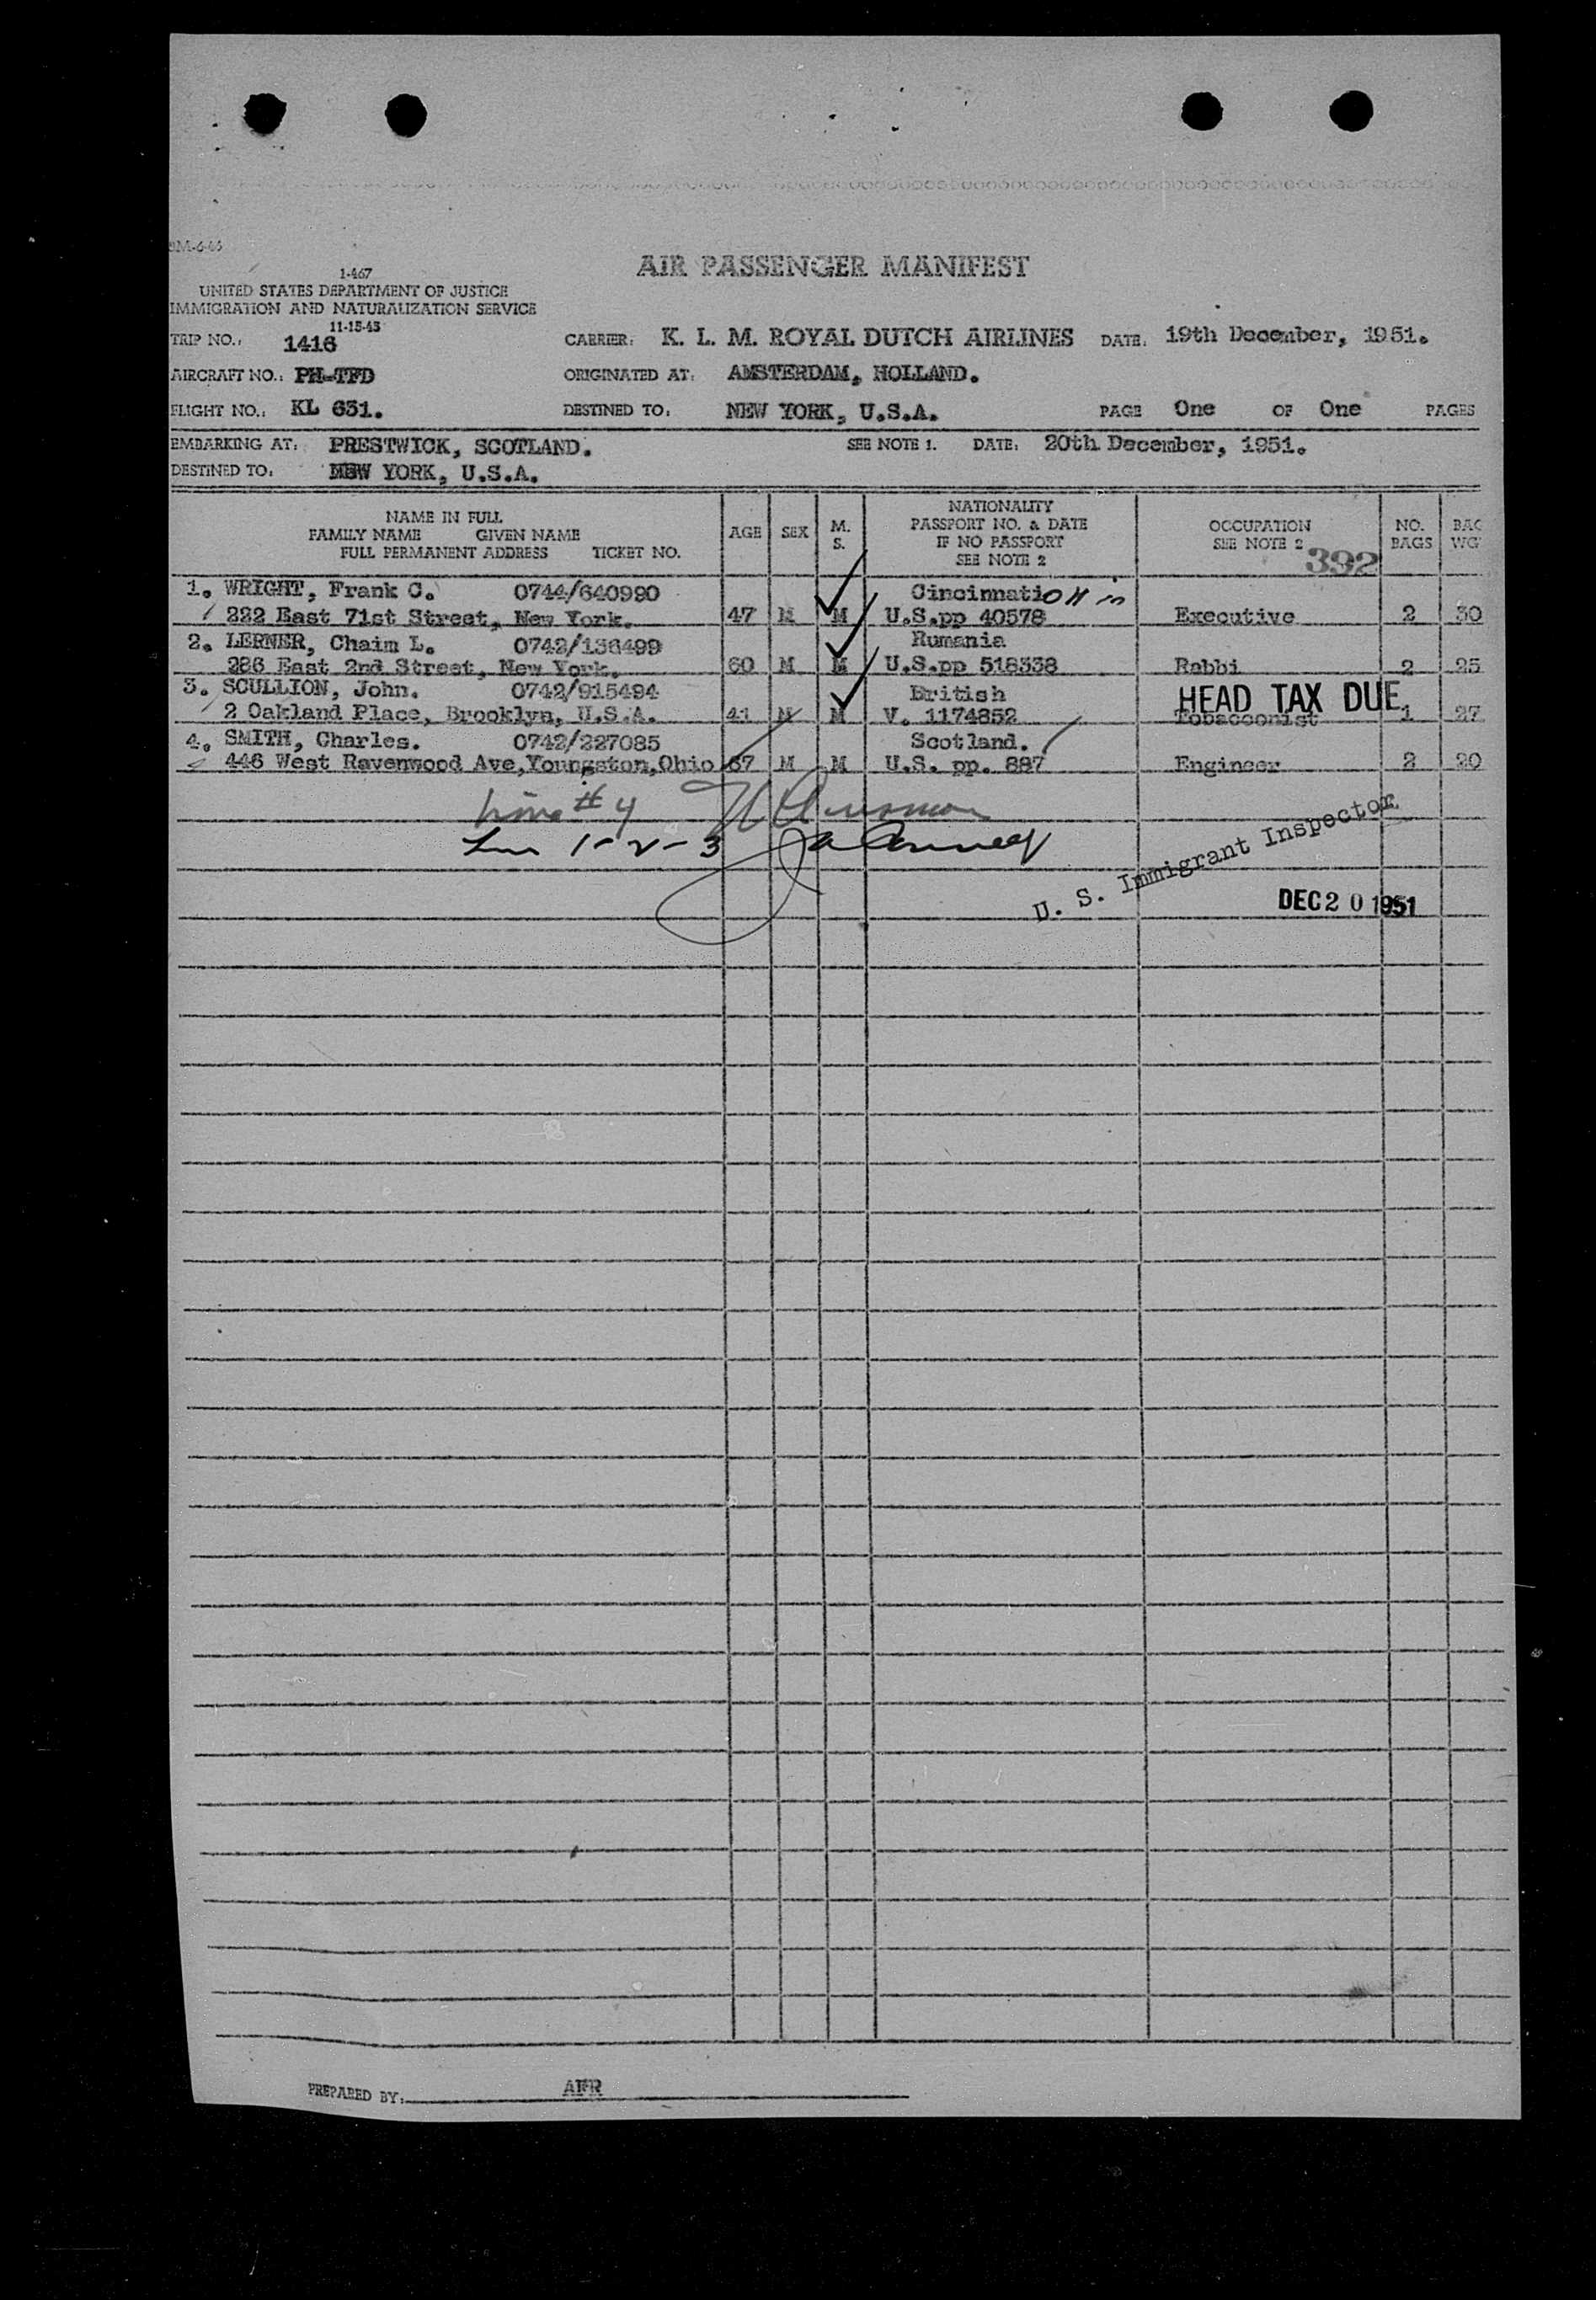 AIR PASSENGER MANIFEST
1-467
UNITED STATES DEPARTMENT OF JUSTICE
IMMIGRATION AND NATURALIZATION SERVICE
11-15-45
TRIP NO.: 1416 CARRIER: K. L. M. ROYAL DUTCH AIRLINES DATE: 19th December, 1951.
AIRCRAFT NO.: PH-TFD ORIGINATED AT: AMSTERDAM, HOLLAND.
FLIGHT NO.: KL 631. DESTINED TO: NEW YORK, U.S.A. PAGE One OF One PAGES
EMBARKING AT: PRESTWICK, SCOTLAND. SEE NOTE 1. DATE: 20th December, 1951.
DESTINED TO: NEW YORK, U.S.A.
NAME IN FULL
FAMILY NAME GIVEN NAME
FULL PERMANENT ADDRESS TICKET NO.
AGE SEX M. S.
NATIONALITY
PASSPORT NO. & DATE
IF NO PASSPORT
SEE NOTE 2
OCCUPATION
SEE NOTE 2
392
NO. BAGS
BAG WG
1. WRIGHT, Frank C. 0744/640990 Cincinnati OH
222 East 71st Street, New York. 47 M M U.S.pp 40578 Executive 2 30
2. LERNER, Chaim L. 0742/136499 Rumania
286 East 2nd Street, New York. 60 M M U.S.pp 518338 Rabbi 2 25
3. SCULLION, John. 0742/915494 British HEAD TAX DUE
2 Oakland Place, Brooklyn, U.S.A. 41 M M V. 1174852 Tobacconist 1 27
4. SMITH, Charles. 0742/227085 Scotland.
446 West Ravenwood Ave,Youngston,Ohio 67 M M U.S. pp. 887 Engineer 2 20
Line # 4
1-2-3
U. S. Immigrant Inspector
DEC 20 1951
PREPARED BY: AFR